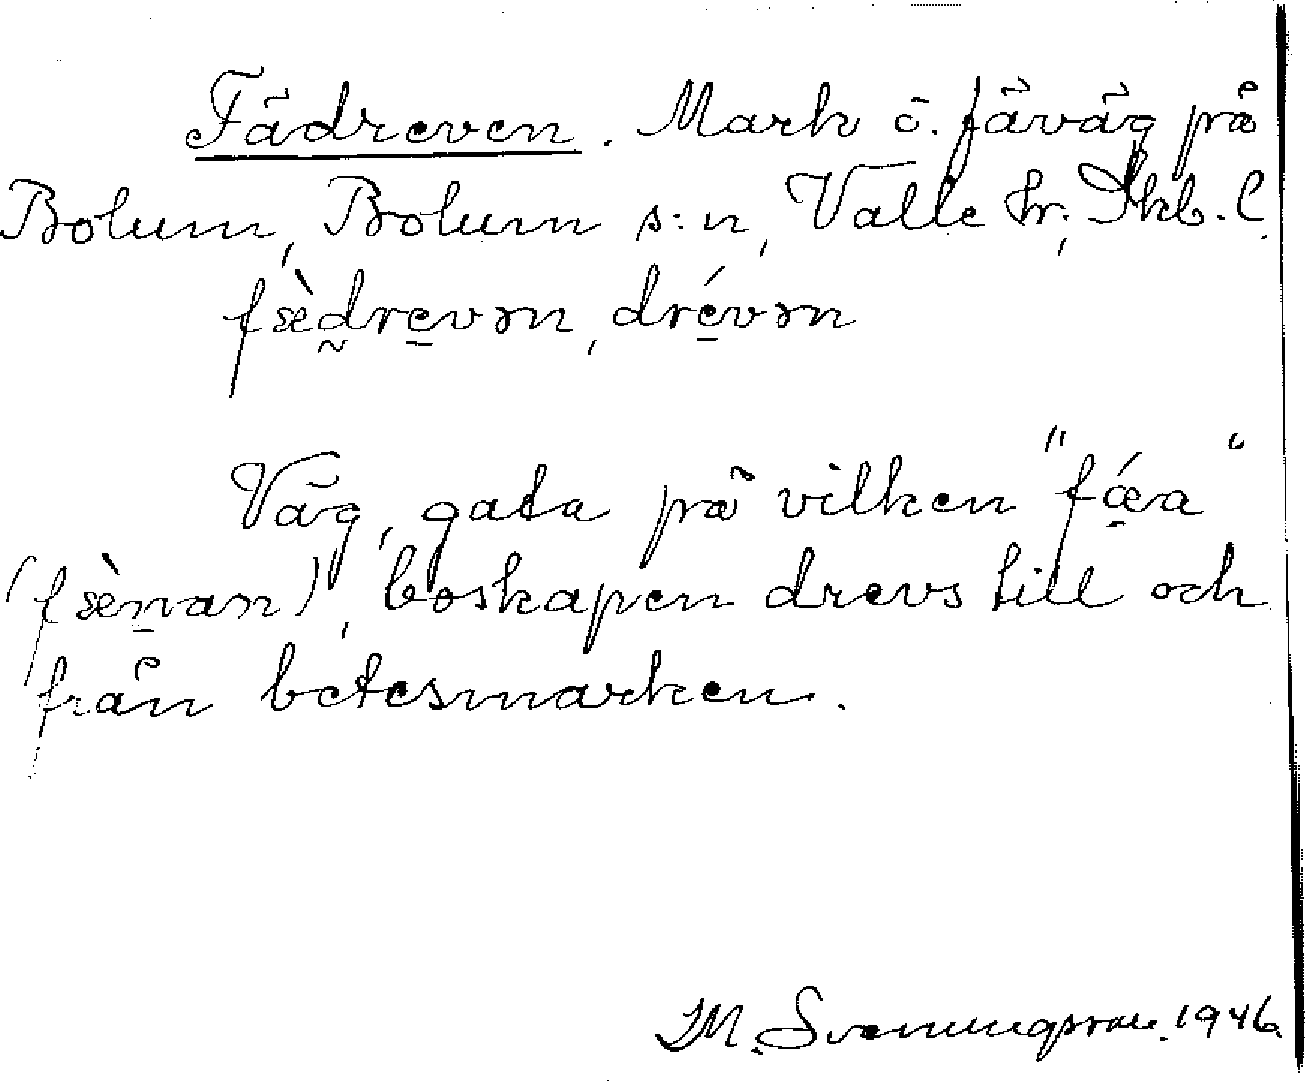 Fädreven. Mark ö. fäväg på
Bolum, Bolum s:n, Valle hr; Skb. l.
fæ̀drevən, drévən
Väg, gata på vilken "fǽa"
(fæ̀nan), boskapen drevs till och
från betesmarken.
M. Svenningsson. 1946.